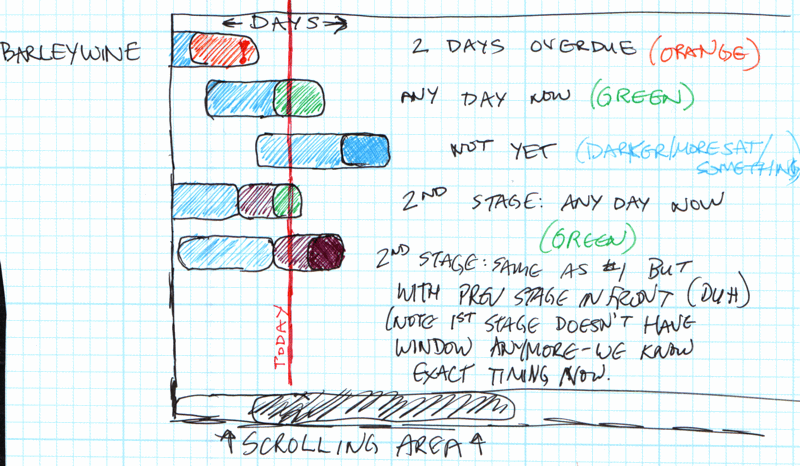 ← DAYS →
BARLEYWINE
2 DAYS OVERDUE (ORANGE)
!
ANY DAY NOW (GREEN)
NOT YET (DARKER/MORE SAT/
SOMETHING)
2ND STAGE: ANY DAY NOW
(GREEN)
2ND STAGE: SAME AS #1 BUT
WITH PREV STAGE IN FRONT (DUH)
(NOTE 1ST STAGE DOESN'T HAVE
WINDOW ANYMORE - WE KNOW
EXACT TIMING NOW.
TODAY
↑ SCROLLING AREA ↑